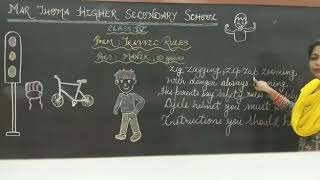 MAR THOMA HIGHER SECONDARY SCHOOL
CLASS IV
POEM: TRAFFIC RULES
Zig Zagging, Zip zap zooming
With danger always
His parents say safety rules
Cycle helmet you must
Instructions you should